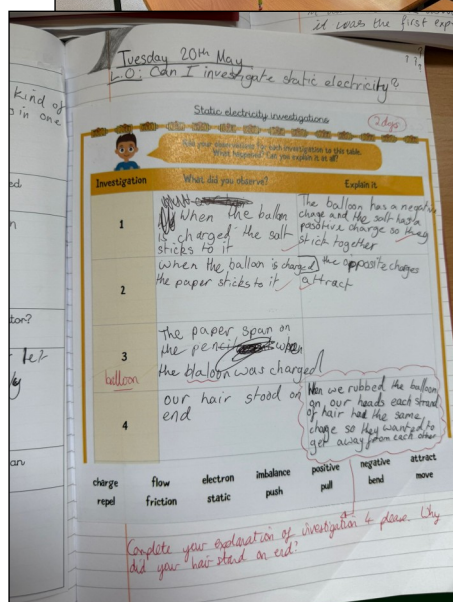 it was the first exp
kind of
s in one
Tuesday 20th May
L.O: Can I investigate static electricity?
Static electricity investigations
2 dgs
Add your observations for each investigation to this table.
What happened? Can you explain it at all?
Investigation
What did you observe?
Explain it
1
When the balloon
is charged the salt
sticks to it
The balloon has a negative
chage and the salt has a
positive charge so they
stick together
2
when the balloon is charged
the paper sticks to it
the opposite charges
attract
3
The paper span on
the pencil when
the blaloon was charged
balloon
4
our hair stood on
end
When we rubbed the balloon
on our heads each strand
of hair had the same
chage so they wanted to
get away from each other
charge flow electron imbalance positive negative attract
repel friction static push pull bend move
Complete your explanation of investigation 4 please. Why
did your hair stand on end?
tor?
an